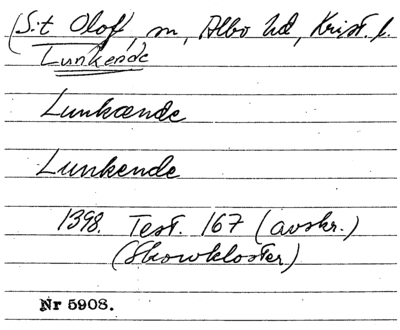 (S:t Olof), sn, Albo hd, Krist. l.
Lunkende
Lunkænde
Lunkende
1398. Test. 167 (avskr.)
(Skowkloster)
Nr 5908.